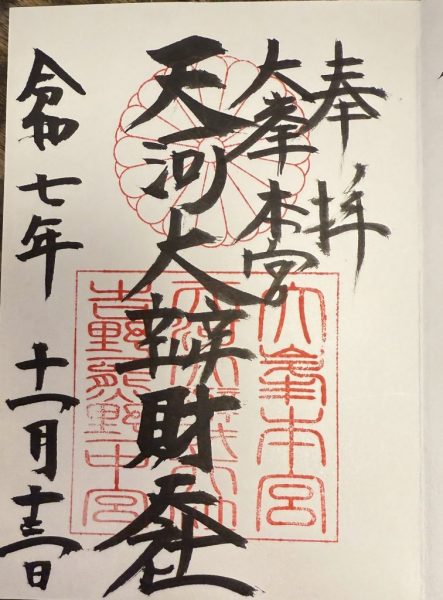 奉拝
大峯本宮
天河大辨財天社
令和七年 十一月十三日
大峯本宮
吉野熊野中宮